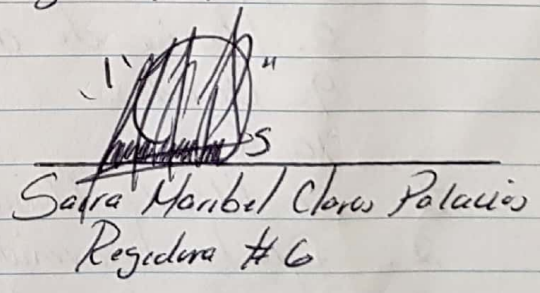 Sadra Maribel Claros Palacios
Regidora # 6